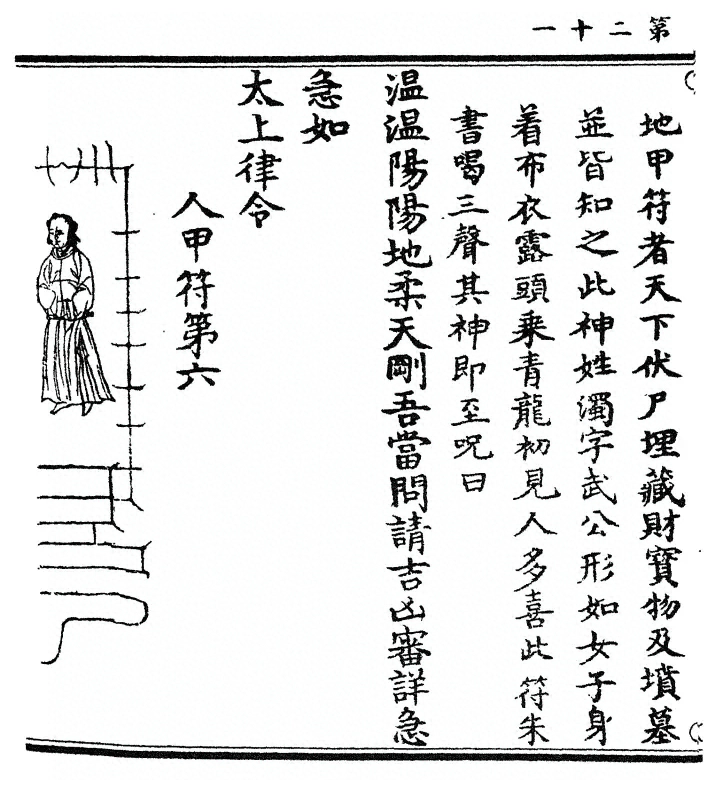 第二十一
地甲符者天下伏尸埋藏財寶物及墳墓
並皆知之此神姓濁字武公形如女子身
着布衣露頭乗青龍初見人多喜此符朱
書喝三聲其神即至呪曰
温温陽陽地柔天剛吾當問請吉凶審詳急
急如
太上律令
人甲符第六